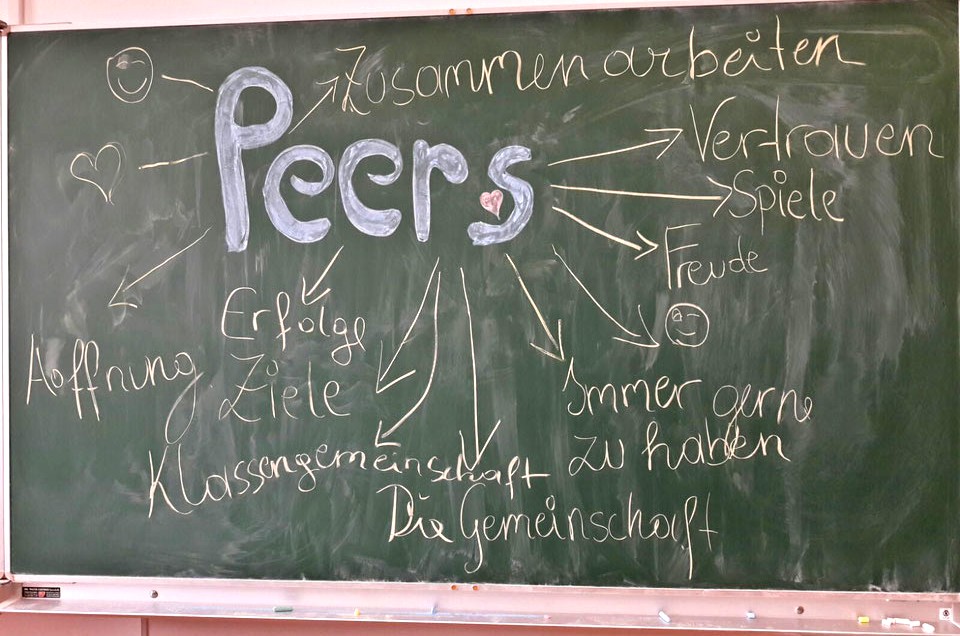 Zusammen arbeiten
Peers
Vertrauen
Spiele
Freude
Erfolge
Ziele
Hoffnung
Immer gerne
zu haben
Klassengemeinschaft
Die Gemeinschaft